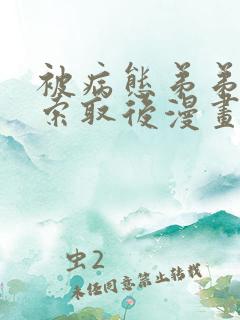 被病態弟弟
索取後漫畫
虫2
未经同意禁止转载